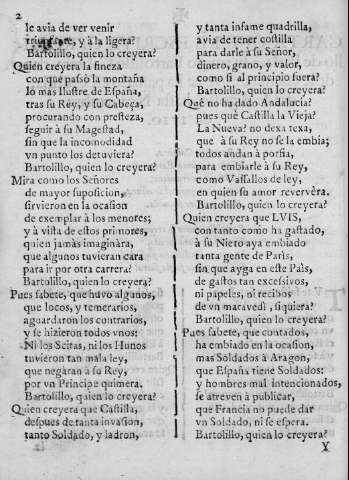 2
le avia de ver venir
triunfante, y à la ligera?
Bartolillo, quien lo creyera?
Quien creyera la fineza
con que passò la montaña
lo mas Ilustre de España,
tras su Rey, y su Cabeça,
procurando con presteza,
seguir à su Magestad,
sin que la incomodidad
vn punto los detuviera?
Bartolillo, quien lo creyera?
Mira como los Señores
de mayor suposicion,
sirvieron en la ocasion
de exemplar à los menores;
y à vista de estos primores,
quien jamàs imaginàra,
que algunos tuvieran cara
para ir por otra carrera?
Bartolillo, quien lo creyera?
Pues sabete, que huvo algunos,
que locos, y temerarios,
aguardaron los contrarios,
y se hizieron todos vnos:
Ni los Scitas, ni los Hunos
tuvieron tan mala ley,
que negàran à su Rey,
por vn Principe quimera.
Bartolillo, quien lo creyera?
Quien creyera que Castilla,
despues de tanta invasion,
tanto Soldado, y ladron,
y tanta infame quadrilla,
avia de tener costilla
para darle à su Señor,
dinero, grano, y valor,
como si al principio fuera?
Bartolillo, quien lo creyera?
Què no ha dado Andalucia?
pues què Castilla la Vieja?
La Nueva? no dexa texa,
que à su Rey no se la embia;
todos andan à porfia,
para embiarle à su Rey,
como Vassallos de ley,
en quien su amor reververa.
Bartolillo, quien lo creyera?
Quien creyera que LVIS,
con tanto como ha gastado,
à su Nieto aya embiado
tanta gente de Paris,
sin que ayga en este Paìs,
de gastos tan excessivos,
ni papeles, ni recibos
de vn maravedì, siquiera?
Bartolillo, quien lo creyera?
Pues sabete, que contados,
ha embiado en la ocasion,
mas Soldados à Aragon,
que España tiene Soldados:
y hombres mal intencionados,
se atreven à publicar,
que Francia no puede dar
vn Soldado, ni se espera.
Bartolillo, quien lo creyera?
Y